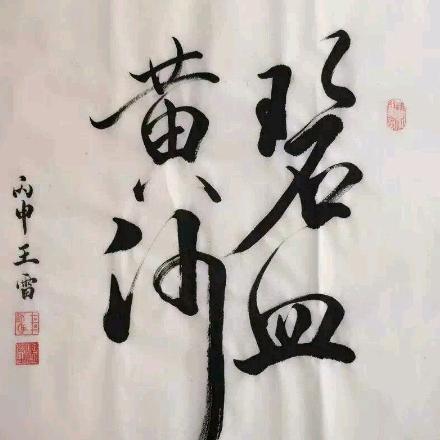 碧血
黄沙
丙申王雪